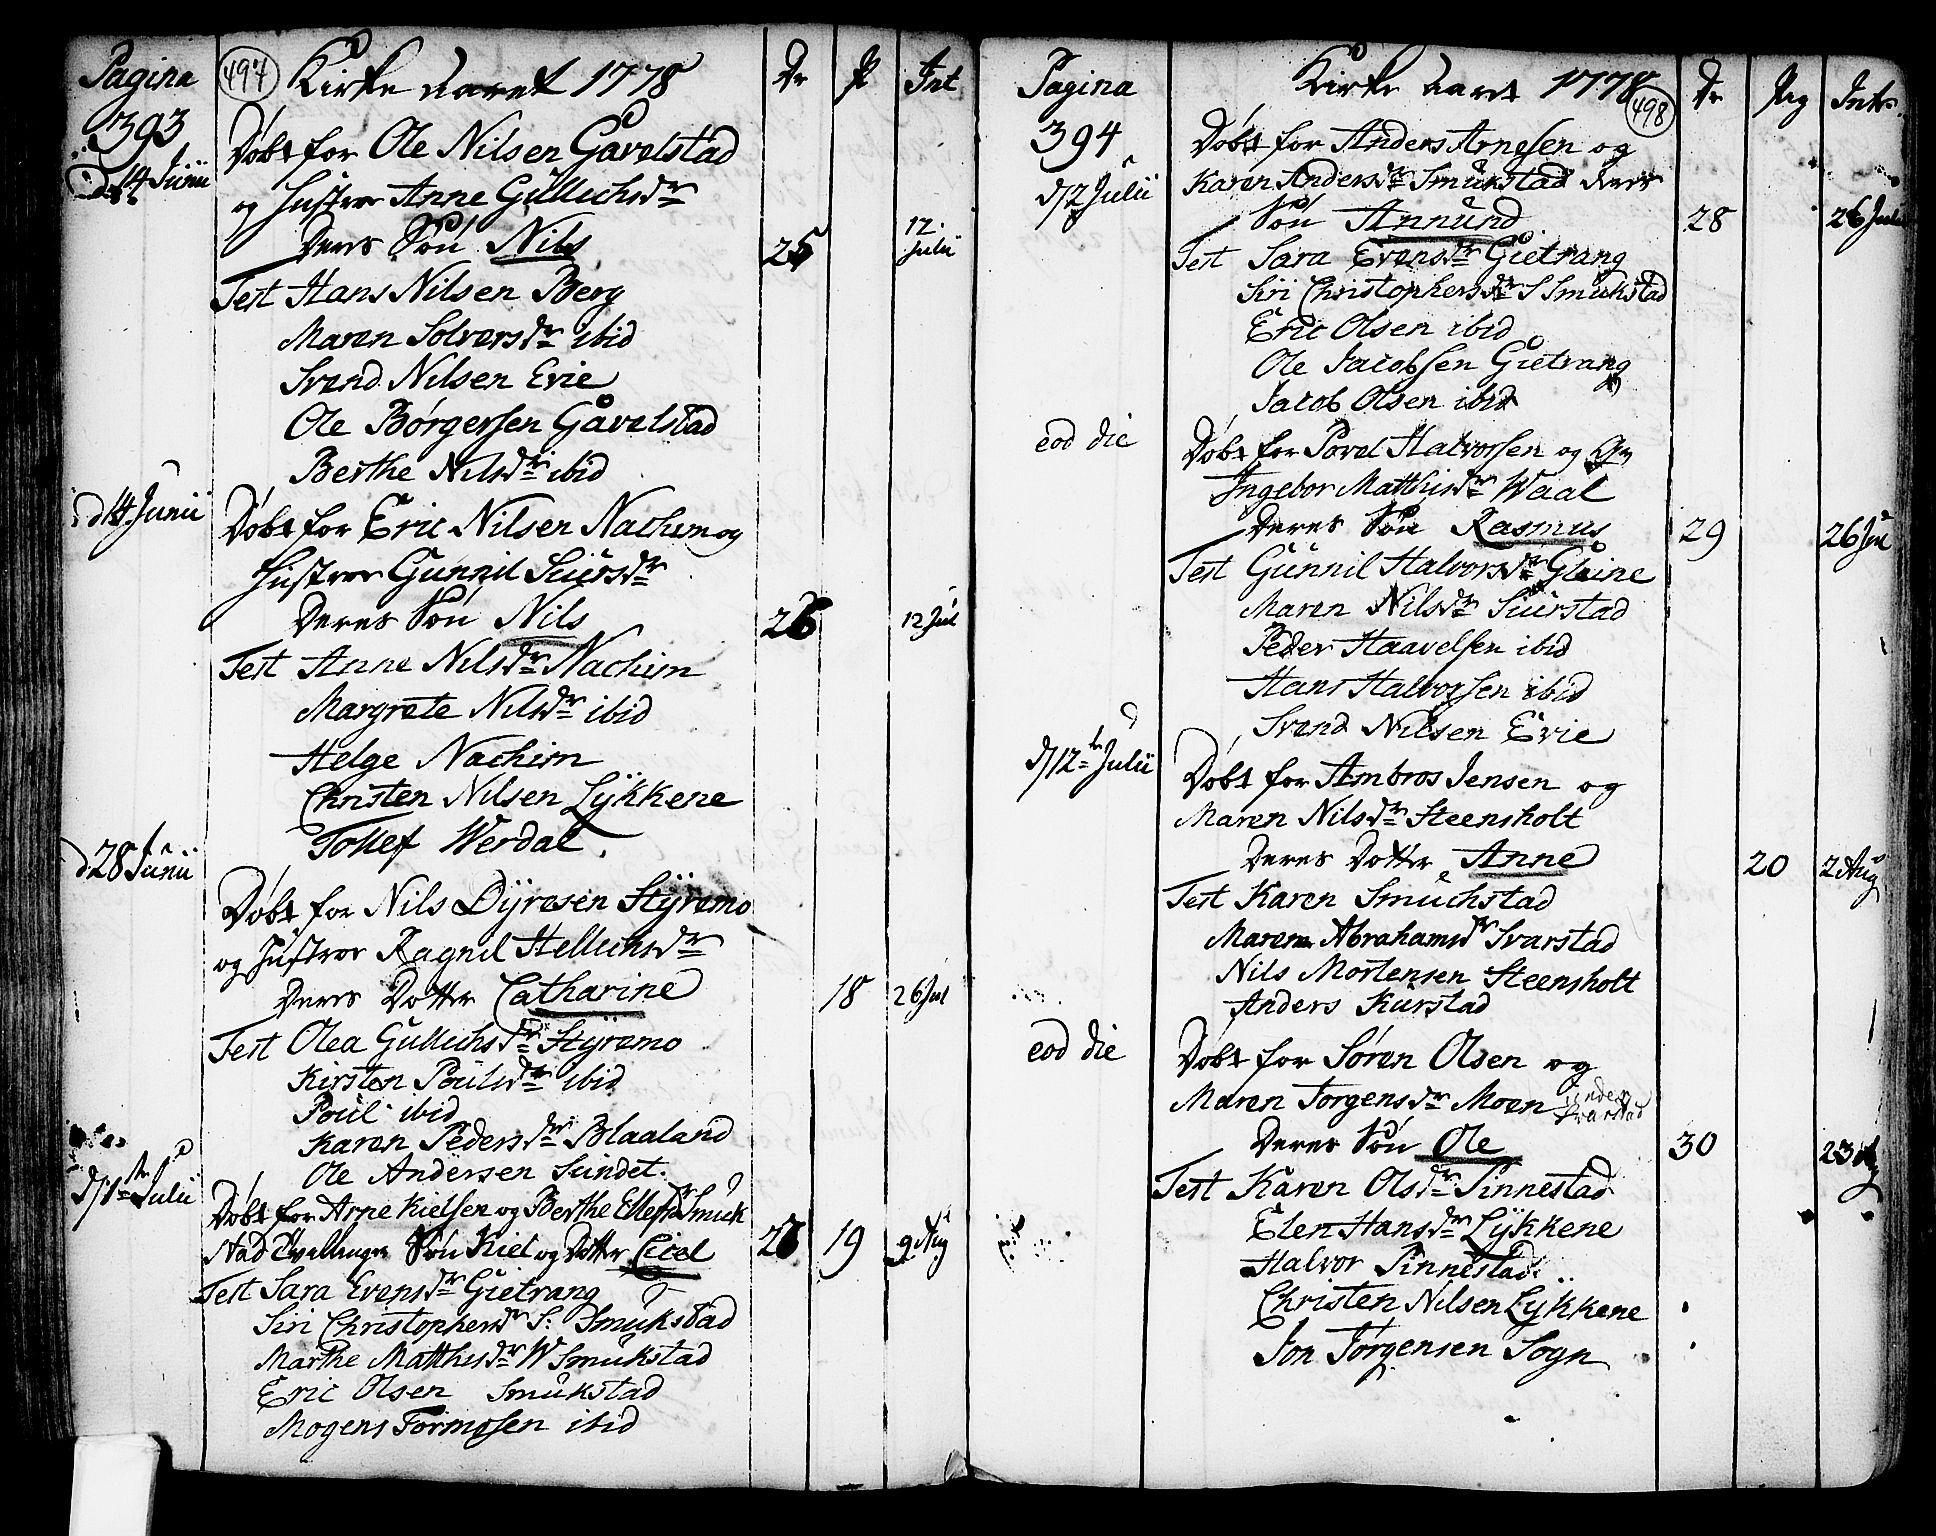 Pagina 497 Kirke aaret 1778 Dr P Int
393
d 14 Junii Døbt for Ole Nilsen Gavelstad
og Hustroe Anne Gullichsdr
Deres Søn Nils 25 12 Julii
Test Hans Nilsen Berg
Maren Solversdr ibid
Svend Nilsen Evie
Ole Børgersen Gavelstad
Berthe Nilsdr ibid
d 14 Junii Døbt for Eric Nilsen Nachim og
Hustroe Gunnil Siursdr
Deres Søn Nils 26 12 Jul
Test Anne Nilsdr Nachim
Margrete Nilsdr ibid
Helge Nachim
Christen Nilsen Lÿkkene
Tollef Werdal
d 28 Junii
Døbt for Nils Dÿresen Stÿremo
og Hustroe Ragnil Hellichsdr
Deres Dotter Catharine 18 26 Jul
Test Olea Gullichsdr Stÿremo
Kirsten Poulsdr ibid
Poul ibid
Karen Pedersdr Blaaland
Ole Andersen Sundet
d 1 Julii
Døbt for Arne Kielsen og Berthe Ellefsdr Smuk
stad Tvellinger Søn Kiel og Dotter Cicel 27 19 9 Aug
Test Sara Evensdr Gietrang
Siri Christophersdr S: Smukstad
Marthe Matthisdr W Smukstad
Eric Olsen Smukstad
Mogens Tormosen ibid
Pagina Kirke aaret 1778 498 Dr Pig Intr
394
d 12 Julii Døbt for Anders Arnesen og
Karen Andersdr Smukstad deres
Søn Annund 28 26 Julii
Test Sara Evensdr Gietrang
Siri Christophersdr S Smukstad
Eric Olsen ibid
Ole Jacobsen Gietrang
Jacob Olsen ibid
eod die Døbt for Povel Halvorsen og
Ingebor Matthisdr Waal
Deres Søn Rasmus 29 26 Jul
Test Gunnil Halvorsdr Gleine
Maren Nilsdr Siurstad
Peder Haavelsen ibid
Hans Halvorsen ibid
Svend Nilsen Evie
d 12 Julii Døbt for Ambros Jensen og
Maren Nilsdr Steensholt
Deres Dotter Anne 20 2 Aug
Test Karen Smuchstad
Maren Abrahamsdr Svarstad
Nils Mortensen Steensholt
Anders Kurstad
eod die Døbt for Søren Olsen og
Maren Torgensdr Moen under Svarstad
Deres Søn Ole 30 23 Aug
Test Karen Olsdr Pinnestad
Elen Hansdr Lÿkkene
Halvor Pinnestad
Christen Nilsen Lÿkkene
Jon Jørgensen Sogn